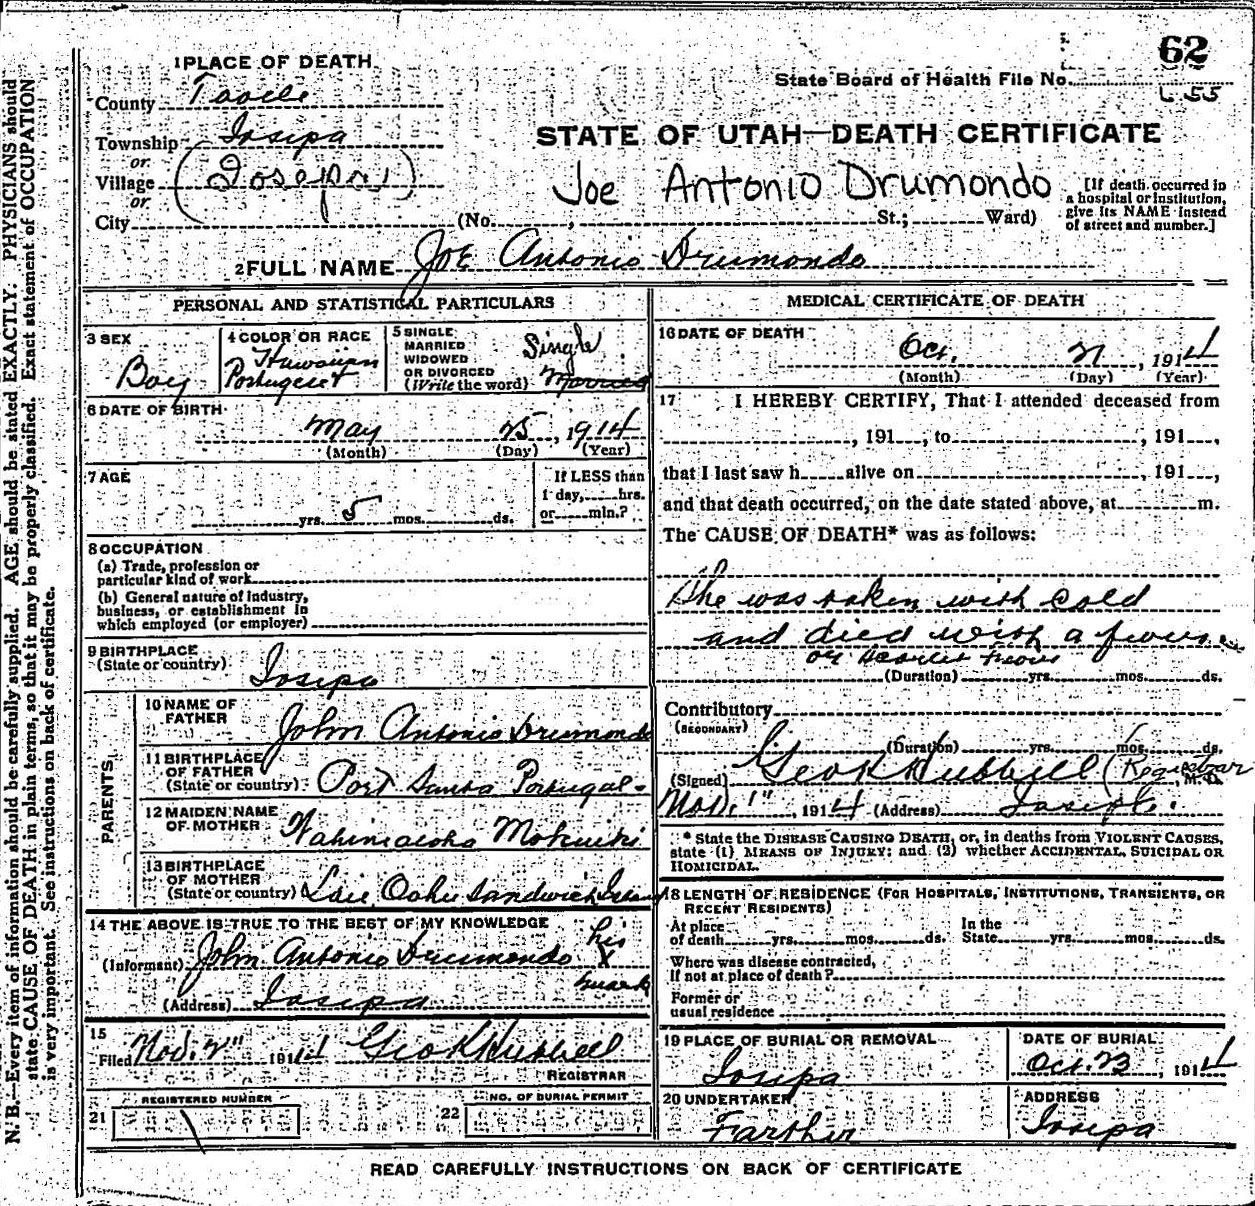 62
State Board of Health File No.
L 55
1 PLACE OF DEATH
County Tooele
Township Iosipa
or
Village (Josepa)
or
City
STATE OF UTAH—DEATH CERTIFICATE
Joe Antonio Drumondo
(No. , St.; Ward)
[If death occurred in
a hospital or institution,
give its NAME instead
of street and number.]
2 FULL NAME Joe Antonio Drumondo
PERSONAL AND STATISTICAL PARTICULARS
3 SEX
Boy
4 COLOR OR RACE
Hawaiian
Portugeest
5 SINGLE
MARRIED
WIDOWED
OR DIVORCED
(Write the word)
Single
Married
6 DATE OF BIRTH
May 25, 1914
(Month) (Day) (Year)
7 AGE
yrs. 5 mos. ds.
If LESS than
1 day, hrs.
or min.?
8 OCCUPATION
(a) Trade, profession or
particular kind of work
(b) General nature of industry,
business, or establishment in
which employed (or employer)
9 BIRTHPLACE
(State or country)
Iosipa
PARENTS
10 NAME OF
FATHER
John Antonio Drumondo
11 BIRTHPLACE
OF FATHER
(State or country)
Port Santa Portugal
12 MAIDEN NAME
OF MOTHER
13 BIRTHPLACE
OF MOTHER
(State or country)
Laie Oahu Sandwich Island
14 THE ABOVE IS TRUE TO THE BEST OF MY KNOWLEDGE
(Informant) John Antonio Drumondo his X mark
(Address) Iosipa
15
Filed Nov. 2", 1914 Geo K Hubbell
REGISTRAR
REGISTERED NUMBER
21
NO. OF BURIAL PERMIT
22
MEDICAL CERTIFICATE OF DEATH
16 DATE OF DEATH
Oct. 21, 1914
(Month) (Day) (Year)
17 I HEREBY CERTIFY, That I attended deceased from
, 191 , to , 191 ,
that I last saw h alive on , 191 ,
and that death occurred, on the date stated above, at m.
The CAUSE OF DEATH* was as follows:
He was taken with cold
and died with a
or Scarlet
(Duration) yrs. mos. ds.
Contributory
(SECONDARY)
(Duration) yrs. mos. ds.
(Signed) Geo K Hubbell (Registrar
M.D.
Nov. 1", 1914 (Address)
* State the DISEASE CAUSING DEATH, or, in deaths from VIOLENT CAUSES,
state (1) MEANS OF INJURY; and (2) whether ACCIDENTAL, SUICIDAL OR
HOMICIDAL.
18 LENGTH OF RESIDENCE (FOR HOSPITALS, INSTITUTIONS, TRANSIENTS, OR
RECENT RESIDENTS)
At place
of death yrs. mos. ds.
In the
State yrs. mos. ds.
Where was disease contracted,
If not at place of death?
Former or
usual residence
19 PLACE OF BURIAL OR REMOVAL
Iosipa
DATE OF BURIAL
Oct. 23, 1914
20 UNDERTAKER
Farther
ADDRESS
Iosipa
READ CAREFULLY INSTRUCTIONS ON BACK OF CERTIFICATE
N. B.—Every item of information should be carefully supplied. AGE should be stated EXACTLY. PHYSICIANS should
state CAUSE OF DEATH in plain terms, so that it may be properly classified. Exact statement of OCCUPATION
is very important. See instructions on back of certificate.